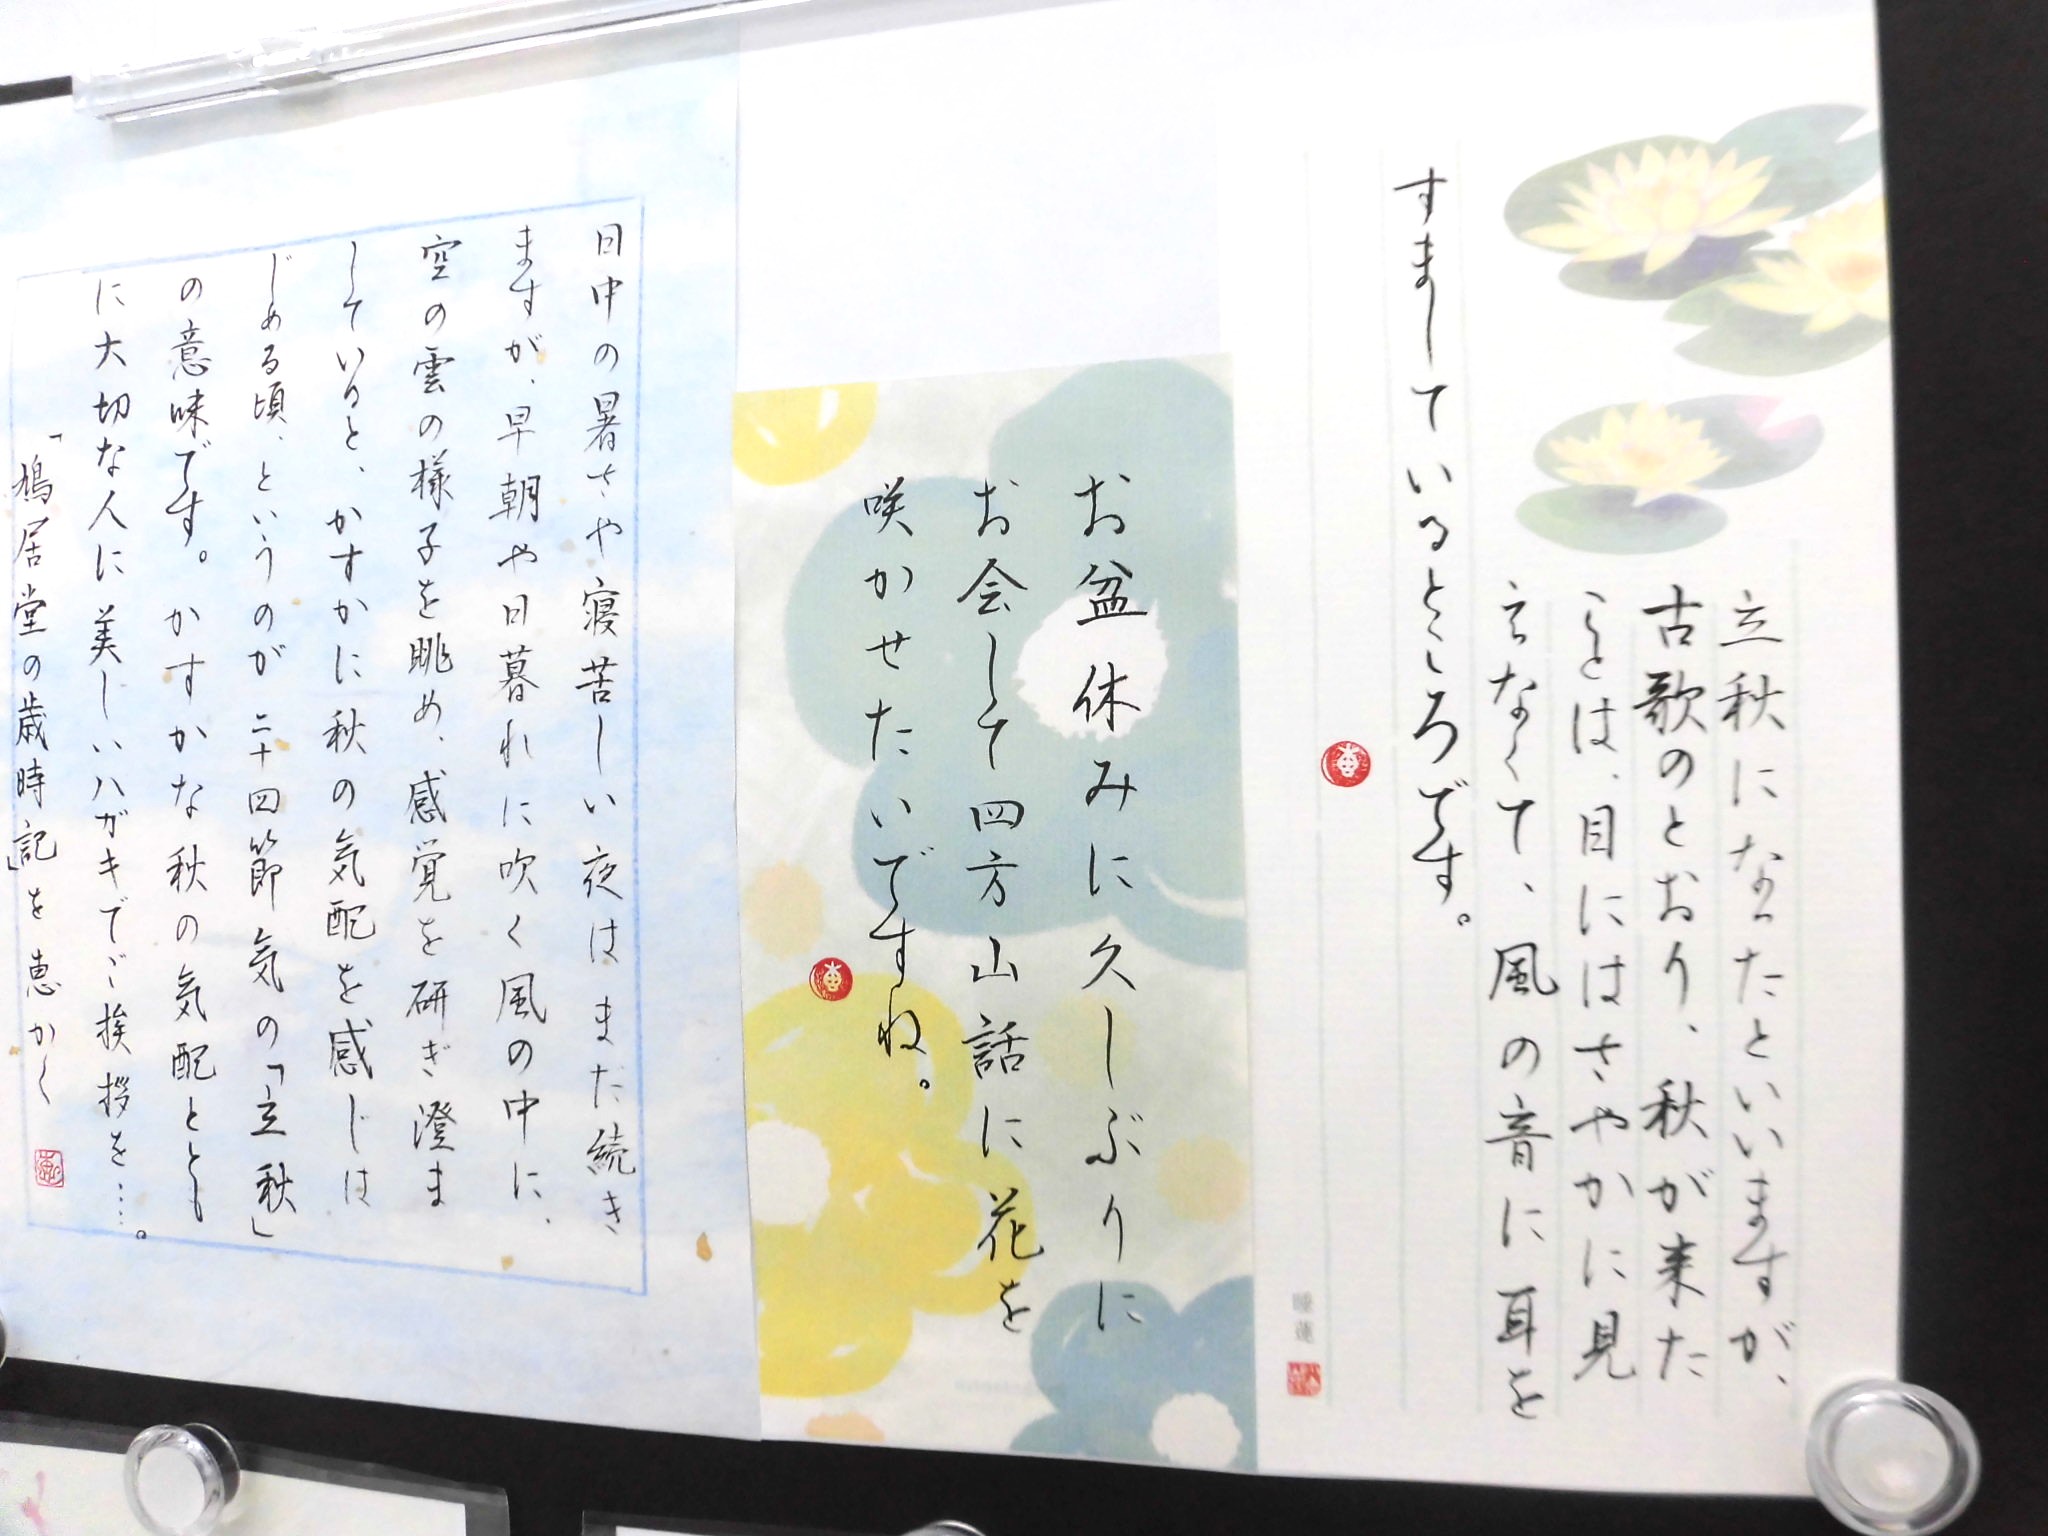 立秋になったといいますが、
古歌のとおり、秋が来た
ことは、目にはさやかに見
えなくて、風の音に耳を
すましているところです。
睡蓮
お盆休みに久しぶりに
お会いして四方山話に花を
咲かせたいですね。
日中の暑さや寝苦しい夜はまだ続き
ますが、早朝や日暮れに吹く風の中に、
空の雲の様子を眺め、感覚を研ぎ澄ま
していると、かすかに秋の気配を感じは
じめる頃、というのが二十四節気の「立秋」
の意味です。かすかな秋の気配ととも
に大切な人に美しいハガキでご挨拶を……。
「鳩居堂の歳時記」を 恵かく